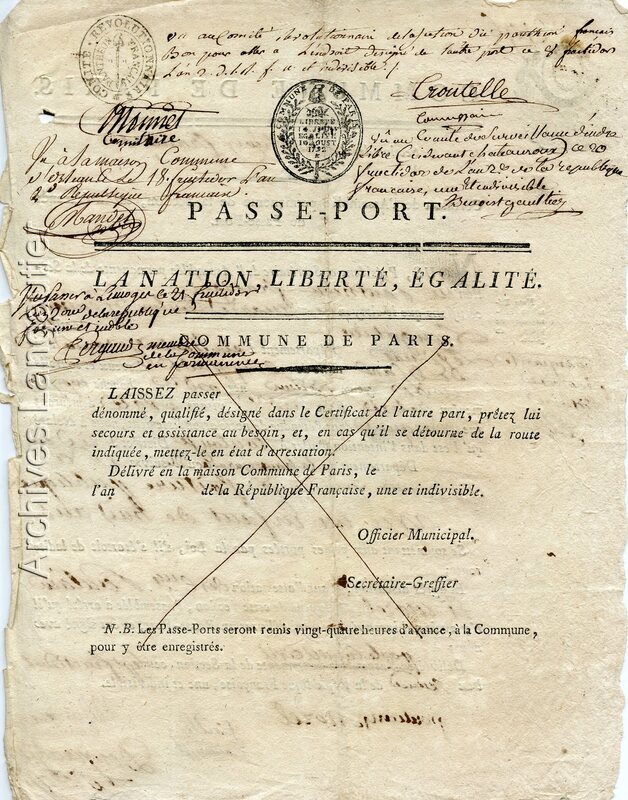 COMITÉ RÉVOLUTIONNAIRE
Vu au Comité révolutionnaire de la section du panthéon français
Bon pour aller à l'endroit désigné de l'autre port ce 8 fructidor
L'an 2 de la R. f. une et indivisible
Croutelle
Commissaire
COMMUNE DE PARIS
LIBERTÉ
EGALITÉ
10 AOUST
1792
Monnet
Commissaire
Vu à la maison Commune
d'Estampes le 18 fructidor l'an
2e République francaise.
Mandet
Vu au Comité de Surveillance d'indre
Libre Cidevant chateauroux ce 20
fructidor de l'an 2 de la république
francaise, une et indivisible
Benoist gaultier
PASSE-PORT.
LA NATION, LIBERTÉ, ÉGALITÉ.
Vu passer à Limoges le 21 fructidor
de la république
une et indivisible
membre
de la Commune
en permanence
COMMUNE DE PARIS.
LAISSEZ passer
dénommé, qualifié, désigné dans le Certificat de l'autre part, prêtez lui
secours et assistance au besoin, et, en cas qu'il se détourne de la route
indiquée, mettez-le en état d'arrestation.
Délivré en la maison Commune de Paris, le
l'an de la République Française, une et indivisible.
Officier Municipal.
Secrétaire-Greffier
N. B. Les Passe-Ports seront remis vingt-quatre heures d'avance, à la Commune,
pour y être enregistrés.
Archives Languettie